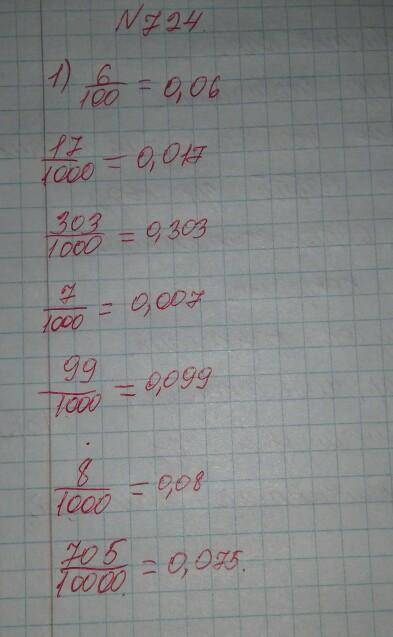 N724
1) 6/100 = 0,06
17/1000 = 0,017
303/1000 = 0,303
7/1000 = 0,007
99/1000 = 0,099
8/1000 = 0,08
705/10000 = 0,075.